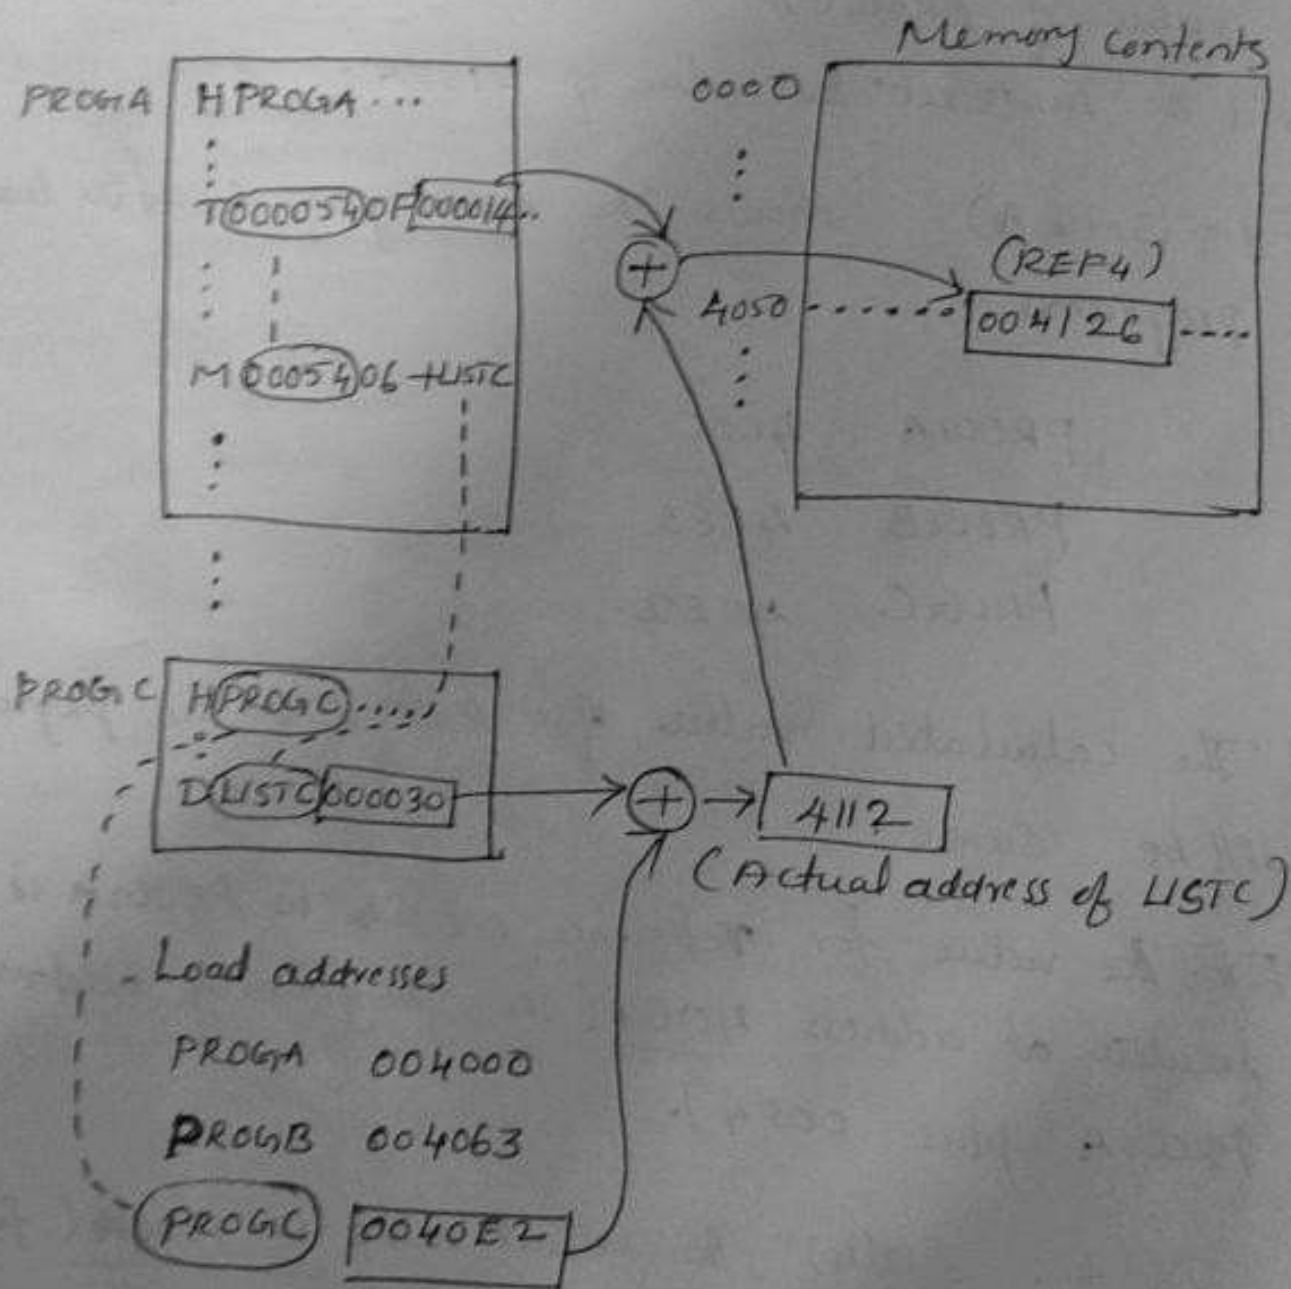 Memory contents
PROGA
HPROGA...
0000
T0000540F000014..
(REF4)
4050
004126
M00005406+LISTC
PROGC
HPROGC.....
DLISTC000030
4112
(Actual address of LISTC)
Load addresses
PROGA 004000
PROGB 004063
PROGC 0040E2